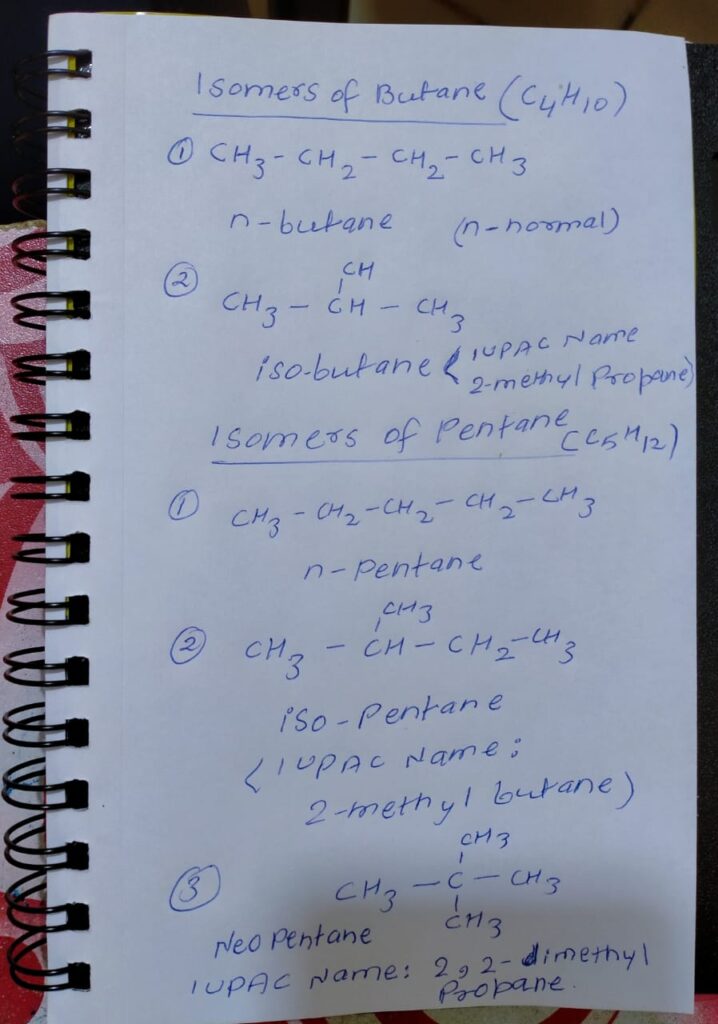 Isomers of Butane (C4H10)
① CH3 - CH2 - CH2 - CH3
n-butane (n-normal)
CH
② CH3 - CH - CH3
iso-butane ( IUPAC Name
2-methyl Propane)
Isomers of Pentane (C5H12)
① CH3 - CH2 - CH2 - CH2 - CH3
n-Pentane
CH3
② CH3 - CH - CH2 - CH3
iso-Pentane
( IUPAC Name :
2-methyl butane)
CH3
③ CH3 - C - CH3
CH3
Neo Pentane
IUPAC Name: 2,2-dimethyl
Propane.